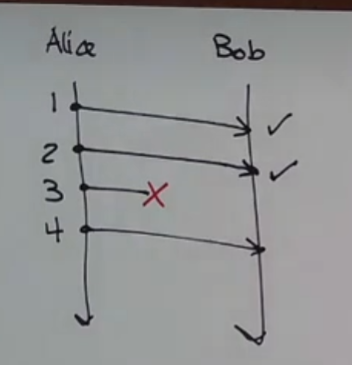 Alice Bob
1 ✓
2 ✓
3 X
4